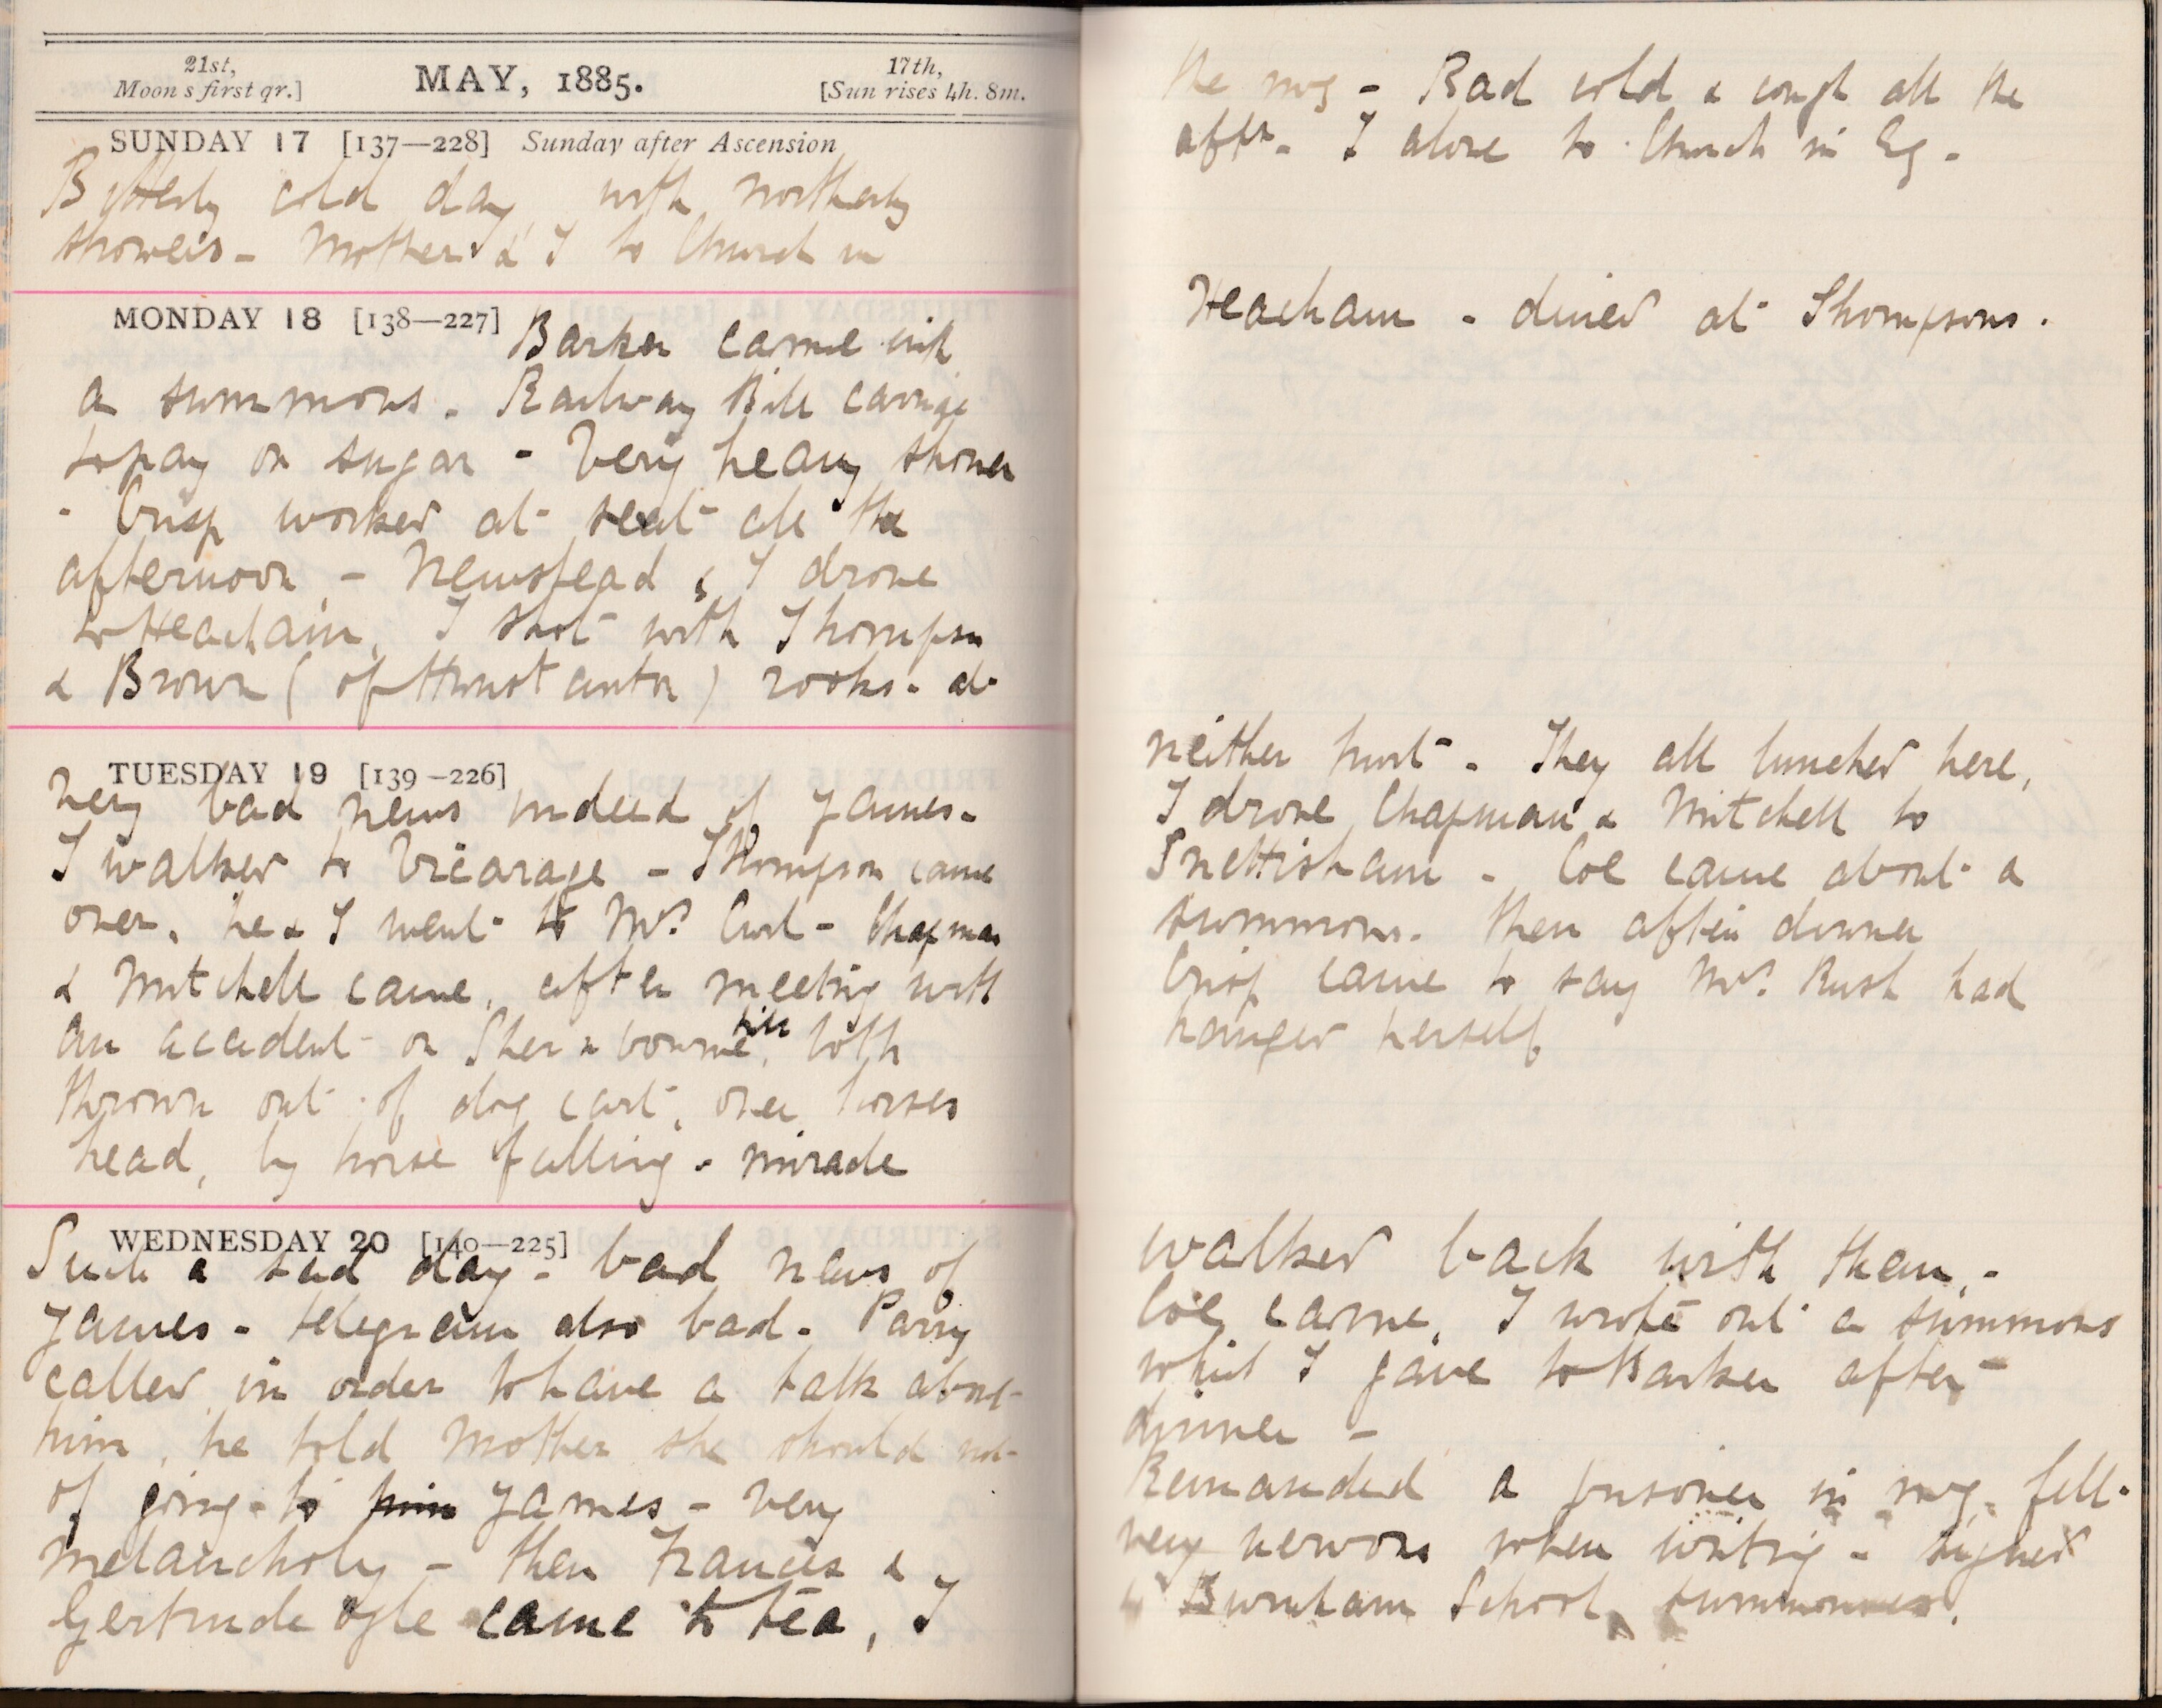 21st,
Moon's first qr.]
MAY, 1885.
17th,
[Sun rises 4h. 8m.
SUNDAY 17 [137—228] Sunday after Ascension
Bitterly cold day, with northerly
showers - Mother & I to Church in
the mg - Bad cold & cough all the
aftn - I alone to Church in Eg -
MONDAY 18 [138—227]
Barker came with
a summons - Railway Bill carriage
to pay on sugar - Very heavy shower
- Crisp worked at seat all the
afternoon - Newstead & I drove
to Heacham, I shot with Thompson
& Brown ( of ) rooks - at
Heacham - dined at Thompsons.
TUESDAY 19 [139—226]
Very bad news indeed of James -
I walked to Vicarage - Thompson came
over, he & I went to Mrs Curl - Chapman
& Mitchell came, after meeting with
an accident on Shernbourne hill, both
thrown out of dog cart, over horses
head, by horse falling - miracle
neither hurt - They all lunched here,
I drove Chapman & Mitchell to
Snettisham - Coe came about a
summons - then after dinner
Crisp came to say Mrs Rush had
hanged herself
WEDNESDAY 20 [140—225]
Such a sad day - bad news of
James - telegram also bad - Parry
called in order to have a talk about
him, he told Mother she should not
of going to him James - very
melancholy - then Frances &
Gertrude Ogle came to tea, I
walked back with them -
Coe came, I wrote out a summons
which I gave to Barker after
dinner -
Remanded a prisoner in mg, felt
very nervous when writing - signed
4 Burnham School summonses.